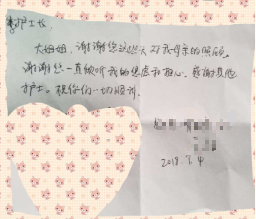 护士长
大姐姐，谢谢您这些天对我母亲的照顾。
谢谢您一直倾听我的焦虑和担心，感谢其他
护士。祝你们一切顺利
2018.